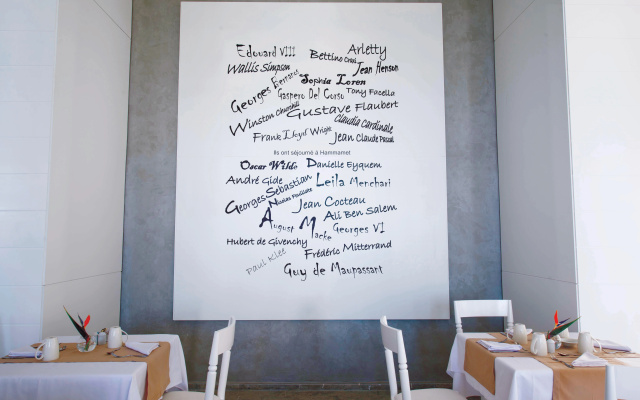 Edouard VIII
Bettino Craxi
Arletty
Wallis Simpson
Jean Henson
Georges Bernanos
Sophia Loren
Gaspero Del Corso
Tony Facella
Winston Churchill
Gustave Flaubert
Claudia Cardinale
Frank Lloyd Wright
Jean Claude Pascal
Ils ont séjourné à Hammamet
Oscar Wilde
Danielle Eyquem
André Gide
Georges Sebastian
Leila Menchari
Nicolas Feuillatte
Jean Cocteau
Ali Ben Salem
August Macke
Georges VI
Hubert de Givenchy
Frédéric Mitterrand
Paul Klee
Guy de Maupassant